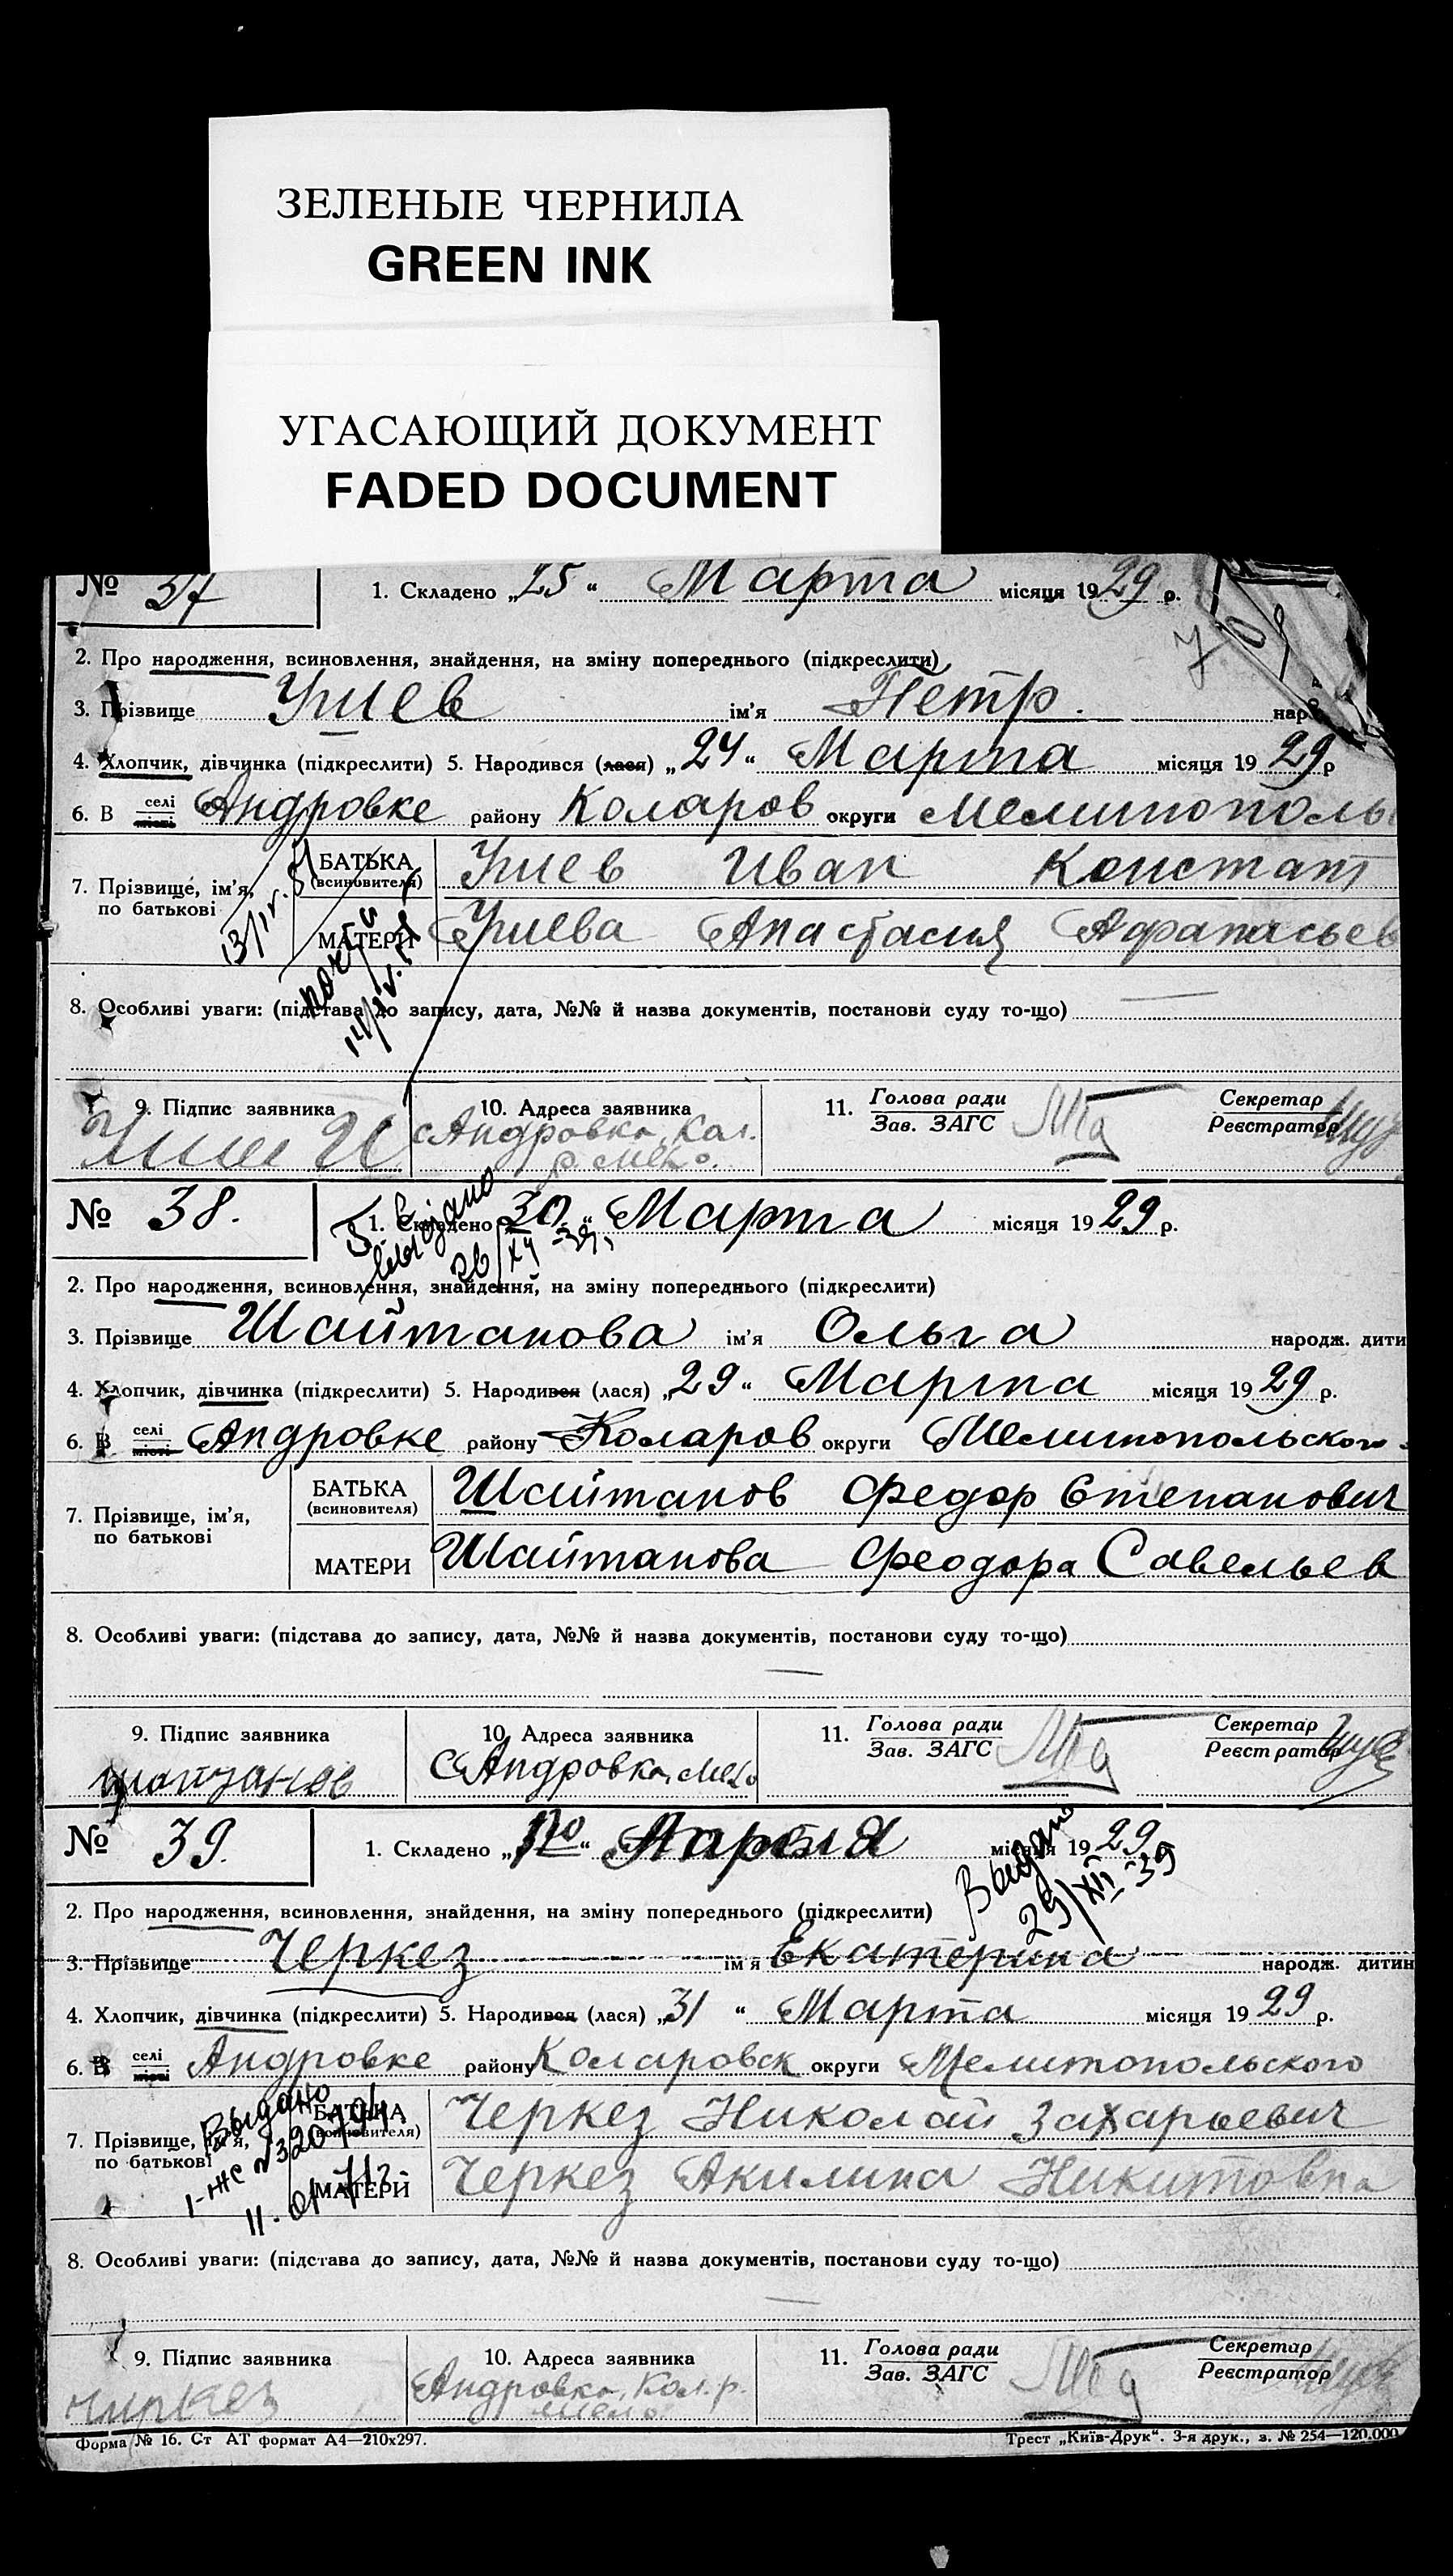 ЗЕЛЕНЫЕ ЧЕРНИЛА
GREEN INK
УГАСАЮЩИЙ ДОКУМЕНТ
FADED DOCUMENT
№ 37 1. Складено „25“ Марта місяця 1929 р.
2. Про народження, всиновлення, знайдення, на зміну попереднього (підкреслити)
3. Прізвище ім'я Петр. нар
4. Хлопчик, дівчинка (підкреслити) 5. Народився (лася) „24“ Марта місяця 1929 р
6. В селі місті Андровке району Коларов округи Мелитополь
7. Прізвище, ім'я, по батькові БАТЬКА (всиновителя) Иван Констант
МАТЕРИ Анастасия Афанасьев
8. Особливі уваги: (підстава до запису, дата, №№ й назва документів, постанови суду то-що)
9. Підпис заявника 10. Адреса заявника 11. Голова ради Зав. ЗАГС Секретар Реєстратор
с Андровка, Кол.
№ 38. 1. Складено „30“ Марта місяця 1929 р.
Выдано
2. Про народження, всиновлення, знайдення, на зміну попереднього (підкреслити)
3. Прізвище Шайтанова ім'я Ольга народж. дити
4. Хлопчик, дівчинка (підкреслити) 5. Народився (лася) „29“ Марта місяця 1929 р.
6. В селі місті Андровке району Коларов округи Мелитопольского
7. Прізвище, ім'я, по батькові БАТЬКА (всиновителя) Шайтанов Федор Степанович
МАТЕРИ Шайтанова Феодора Савельев
8. Особливі уваги: (підстава до запису, дата, №№ й назва документів, постанови суду то-що)
9. Підпис заявника 10. Адреса заявника 11. Голова ради Зав. ЗАГС Секретар Реєстратор
Шайтанов С Андровка,
№ 39. 1. Складено місяця 1929
Выдано
29/XII-39
2. Про народження, всиновлення, знайдення, на зміну попереднього (підкреслити)
3. Прізвище Черкез ім'я Екатерина народж. дитин
4. Хлопчик, дівчинка (підкреслити) 5. Народився (лася) „31“ Марта місяця 1929 р.
6. В селі місті Андровке району Коларовск округи Мелитопольского
Выдано
7. Прізвище, ім'я, по батькові БАТЬКА (всиновителя) Черкез Николай Захарьевич
МАТЕРИ Черкез Акилина Никитовна
8. Особливі уваги: (підстава до запису, дата, №№ й назва документів, постанови суду то-що)
9. Підпис заявника 10. Адреса заявника 11. Голова ради Зав. ЗАГС Секретар Реєстратор
Андровка, Кол. р.
Форма № 16. Ст АТ формат А4—210х297. Трест „Київ-Друк“. 3-я друк., з. № 254—120.000